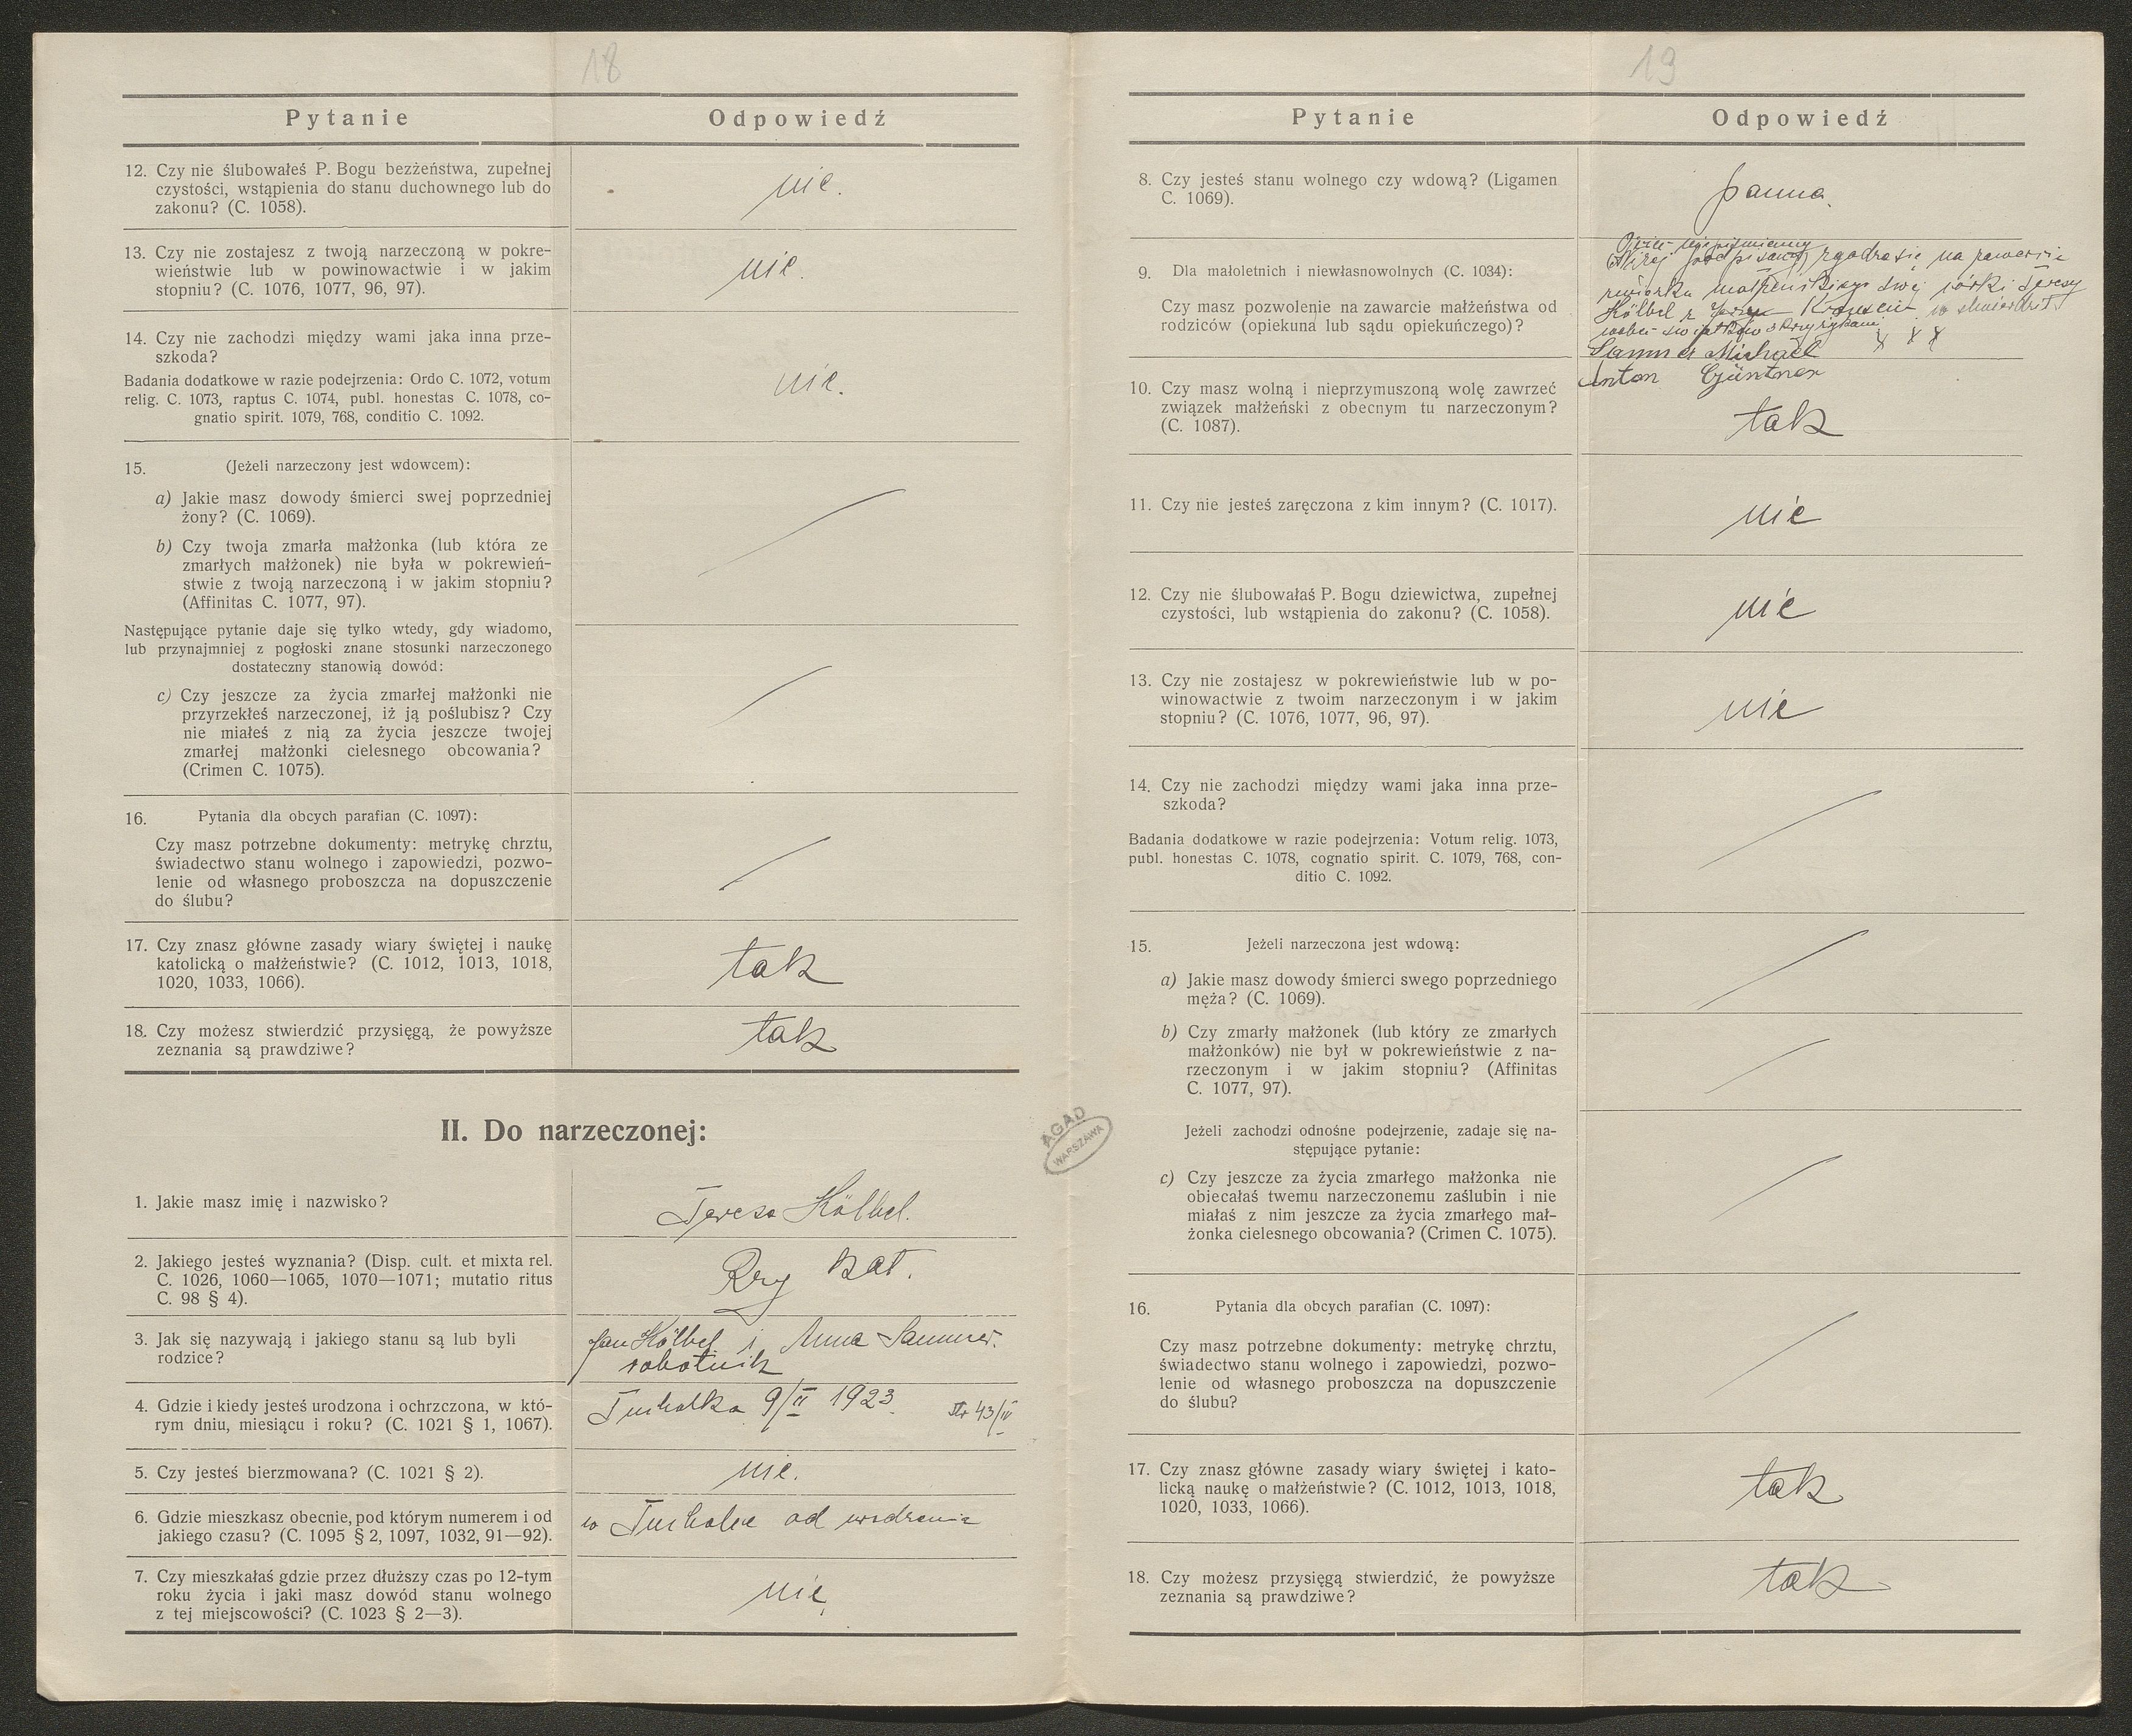 18
Pytanie Odpowiedź
12. Czy nie ślubowałeś P. Bogu bezżeństwa, zupełnej
czystości, wstąpienia do stanu duchownego lub do
zakonu? (C. 1058).
nie.
13. Czy nie zostajesz z twoją narzeczoną w pokre-
wieństwie lub w powinowactwie i w jakim
stopniu? (C. 1076, 1077, 96, 97).
nie.
14. Czy nie zachodzi między wami jaka inna prze-
szkoda?
Badania dodatkowe w razie podejrzenia: Ordo C. 1072, votum
relig. C. 1073, raptus C. 1074, publ. honestas C. 1078, co-
gnatio spirit. 1079, 768, conditio C. 1092.
nie.
15. (Jeżeli narzeczony jest wdowcem):
a) Jakie masz dowody śmierci swej poprzedniej
żony? (C. 1069).
b) Czy twoja zmarła małżonka (lub która ze
zmarłych małżonek) nie była w pokrewień-
stwie z twoją narzeczoną i w jakim stopniu?
(Affinitas C. 1077, 97).
Następujące pytanie daje się tylko wtedy, gdy wiadomo,
lub przynajmniej z pogłoski znane stosunki narzeczonego
dostateczny stanowią dowód:
c) Czy jeszcze za życia zmarłej małżonki nie
przyrzekłeś narzeczonej, iż ją poślubisz? Czy
nie miałeś z nią za życia jeszcze twojej
zmarłej małżonki cielesnego obcowania?
(Crimen C. 1075).
16. Pytania dla obcych parafian (C. 1097):
Czy masz potrzebne dokumenty: metrykę chrztu,
świadectwo stanu wolnego i zapowiedzi, pozwo-
lenie od własnego proboszcza na dopuszczenie
do ślubu?
17. Czy znasz główne zasady wiary świętej i naukę
katolicką o małżeństwie? (C. 1012, 1013, 1018,
1020, 1033, 1066).
tak
18. Czy możesz stwierdzić przysięgą, że powyższe
zeznania są prawdziwe?
tak
II. Do narzeczonej:
1. Jakie masz imię i nazwisko?
Teresa Kölbel.
2. Jakiego jesteś wyznania? (Disp. cult. et mixta rel.
C. 1026, 1060—1065, 1070—1071; mutatio ritus
C. 98 § 4).
Rzy kat.
3. Jak się nazywają i jakiego stanu są lub byli
rodzice?
Jan Kölbel i Anna Sammer.
robotnik
4. Gdzie i kiedy jesteś urodzona i ochrzczona, w któ-
rym dniu, miesiącu i roku? (C. 1021 § 1, 1067).
Tucholka 9/II 1923. Str 43/IV
5. Czy jesteś bierzmowana? (C. 1021 § 2).
nie.
6. Gdzie mieszkasz obecnie, pod którym numerem i od
jakiego czasu? (C. 1095 § 2, 1097, 1032, 91—92).
w Tucholce od urodzenia
7. Czy mieszkałaś gdzie przez dłuższy czas po 12-tym
roku życia i jaki masz dowód stanu wolnego
z tej miejscowości? (C. 1023 § 2—3).
nie.
AGAD
WARSZAWA
19
Pytanie Odpowiedź
8. Czy jesteś stanu wolnego czy wdową? (Ligamen
C. 1069).
panna.
9. Dla małoletnich i niewłasnowolnych (C. 1034):
Czy masz pozwolenie na zawarcie małżeństwa od
rodziców (opiekuna lub sądu opiekuńczego)?
Niżej podpisany zgadza się na zawarcie
związku małżeńskiego swej córki Teresy
Kölbel z
x x x
Sammer Michael
Anton Güntner
10. Czy masz wolną i nieprzymuszoną wolę zawrzeć
związek małżeński z obecnym tu narzeczonym?
(C. 1087).
tak
11. Czy nie jesteś zaręczona z kim innym? (C. 1017).
nie
12. Czy nie ślubowałaś P. Bogu dziewictwa, zupełnej
czystości, lub wstąpienia do zakonu? (C. 1058).
nie
13. Czy nie zostajesz w pokrewieństwie lub w po-
winowactwie z twoim narzeczonym i w jakim
stopniu? (C. 1076, 1077, 96, 97).
nie
14. Czy nie zachodzi między wami jaka inna prze-
szkoda?
Badania dodatkowe w razie podejrzenia: Votum relig. 1073,
publ. honestas C. 1078, cognatio spirit. C. 1079, 768, con-
ditio C. 1092.
15. Jeżeli narzeczona jest wdową:
a) Jakie masz dowody śmierci swego poprzedniego
męża? (C. 1069).
b) Czy zmarły małżonek (lub który ze zmarłych
małżonków) nie był w pokrewieństwie z na-
rzeczonym i w jakim stopniu? (Affinitas
C. 1077, 97).
Jeżeli zachodzi odnośne podejrzenie, zadaje się na-
stępujące pytanie:
c) Czy jeszcze za życia zmarłego małżonka nie
obiecałaś twemu narzeczonemu zaślubin i nie
miałaś z nim jeszcze za życia zmarłego mał-
żonka cielesnego obcowania? (Crimen C. 1075).
16. Pytania dla obcych parafian (C. 1097):
Czy masz potrzebne dokumenty: metrykę chrztu,
świadectwo stanu wolnego i zapowiedzi, pozwo-
lenie od własnego proboszcza na dopuszczenie
do ślubu?
17. Czy znasz główne zasady wiary świętej i kato-
licką naukę o małżeństwie? (C. 1012, 1013, 1018,
1020, 1033, 1066).
tak
18. Czy możesz przysięgą stwierdzić, że powyższe
zeznania są prawdziwe?
tak